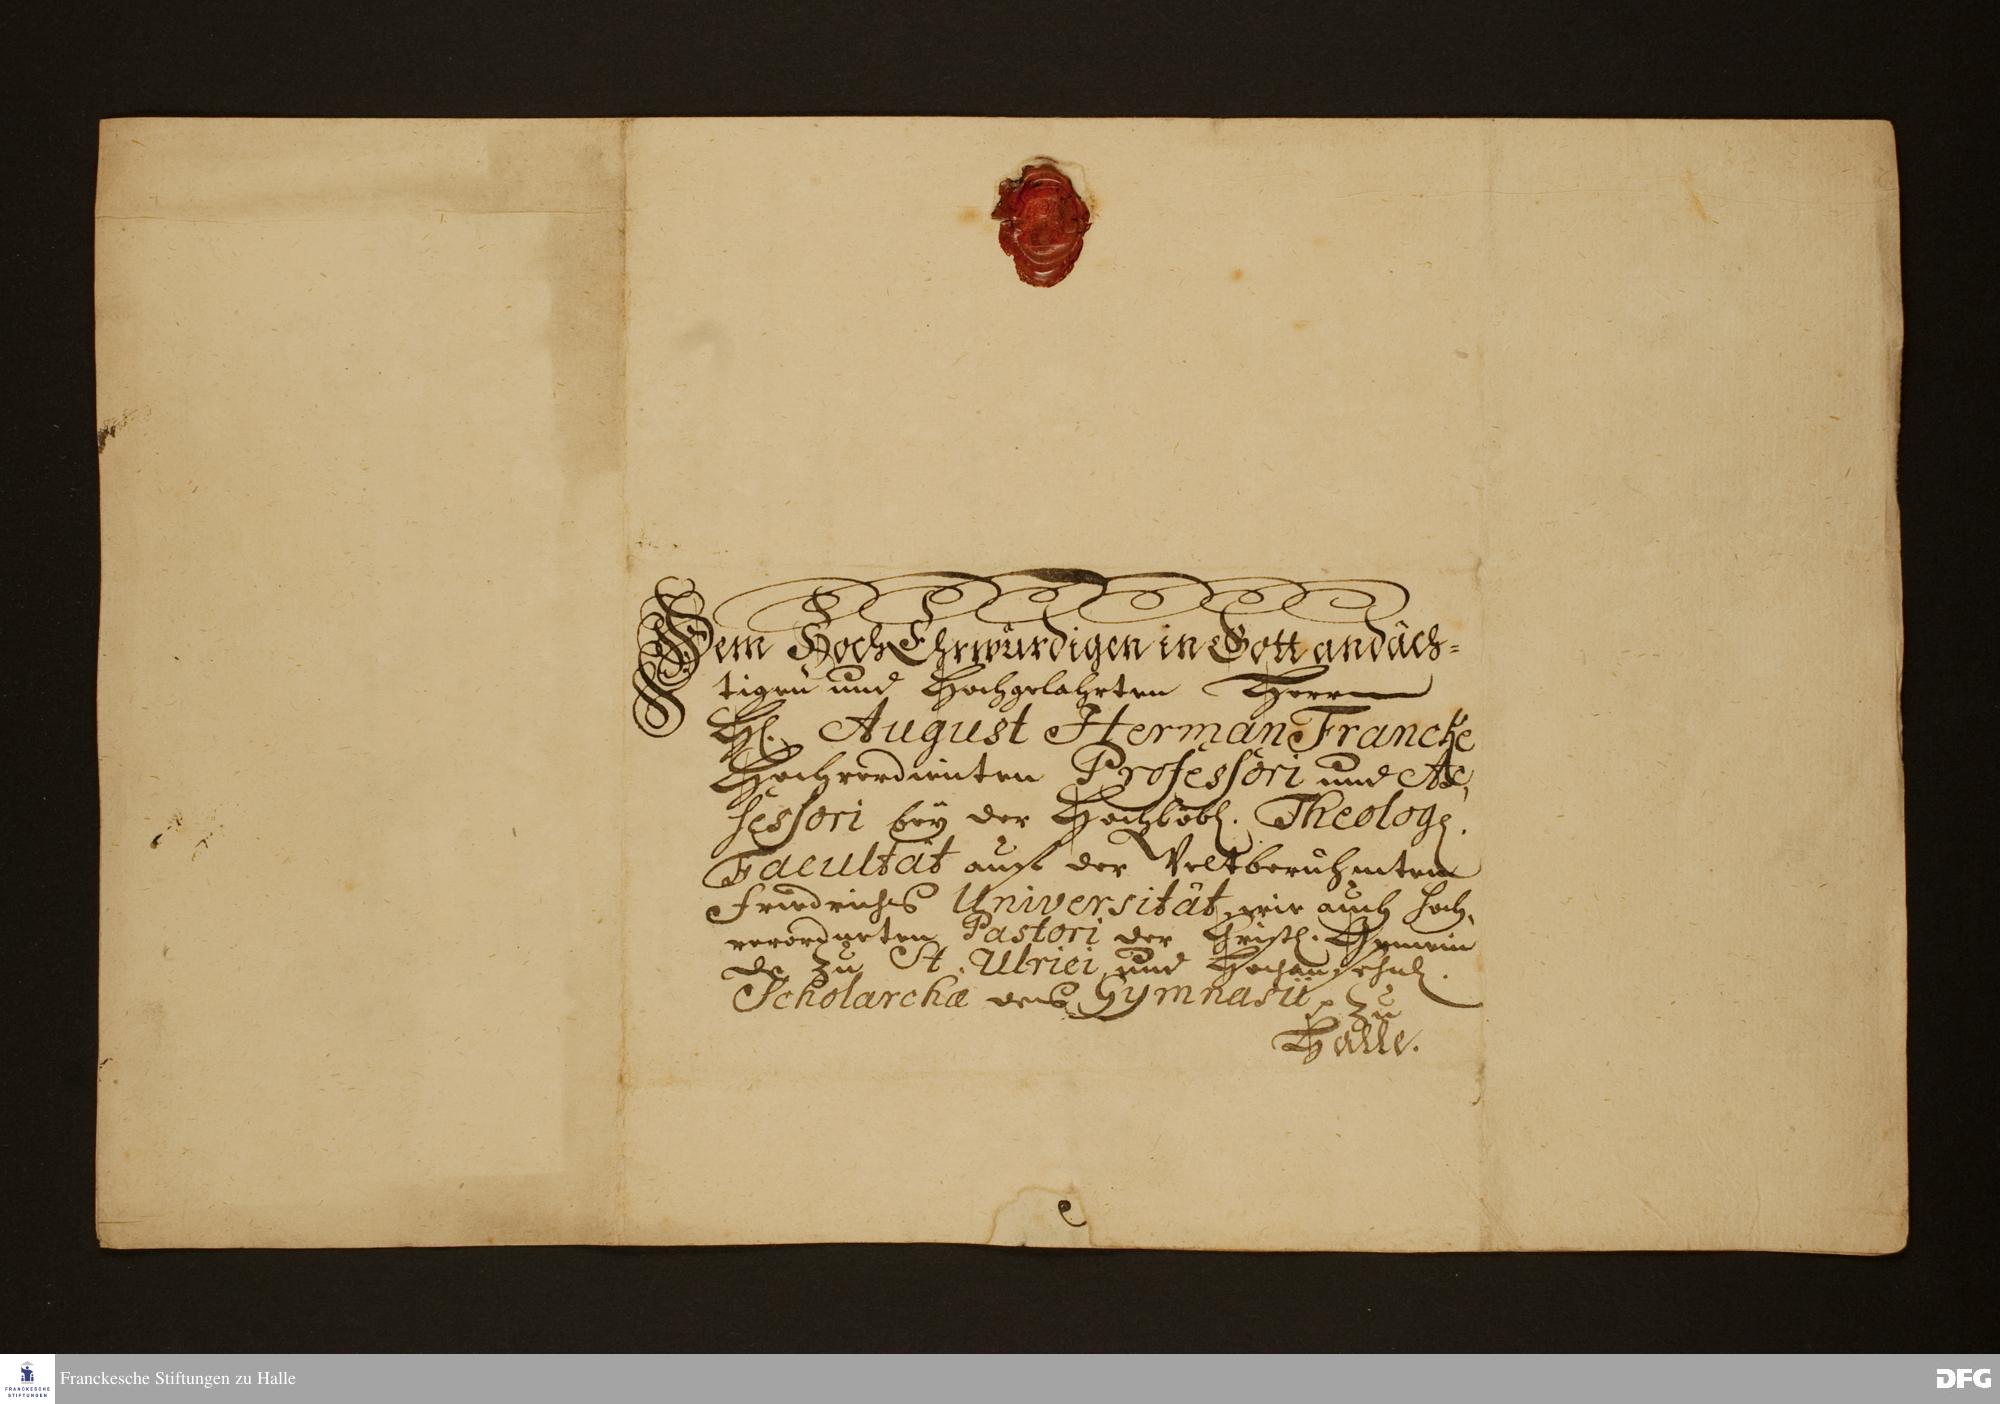 Dem HochEhrwürdigen in Gott andäch-
tigen und Hochgelahrten Herrn
H. August Herman Francke
Hochverdienten Professori und As,
sessori bey der Hochlöbl. Theolog.
Facultät auf der Weltberühmten
Friedrichs Universität, wie auch Hoch,
verordneten Pastori der Christl. Gemein
de zu St. Ulrici und Hochansehnl.
Scholarchæ des Gymnasii p zu
Halle.
Franckesche Stiftungen zu Halle
FRANCKESCHE
STIFTUNGEN
DFG